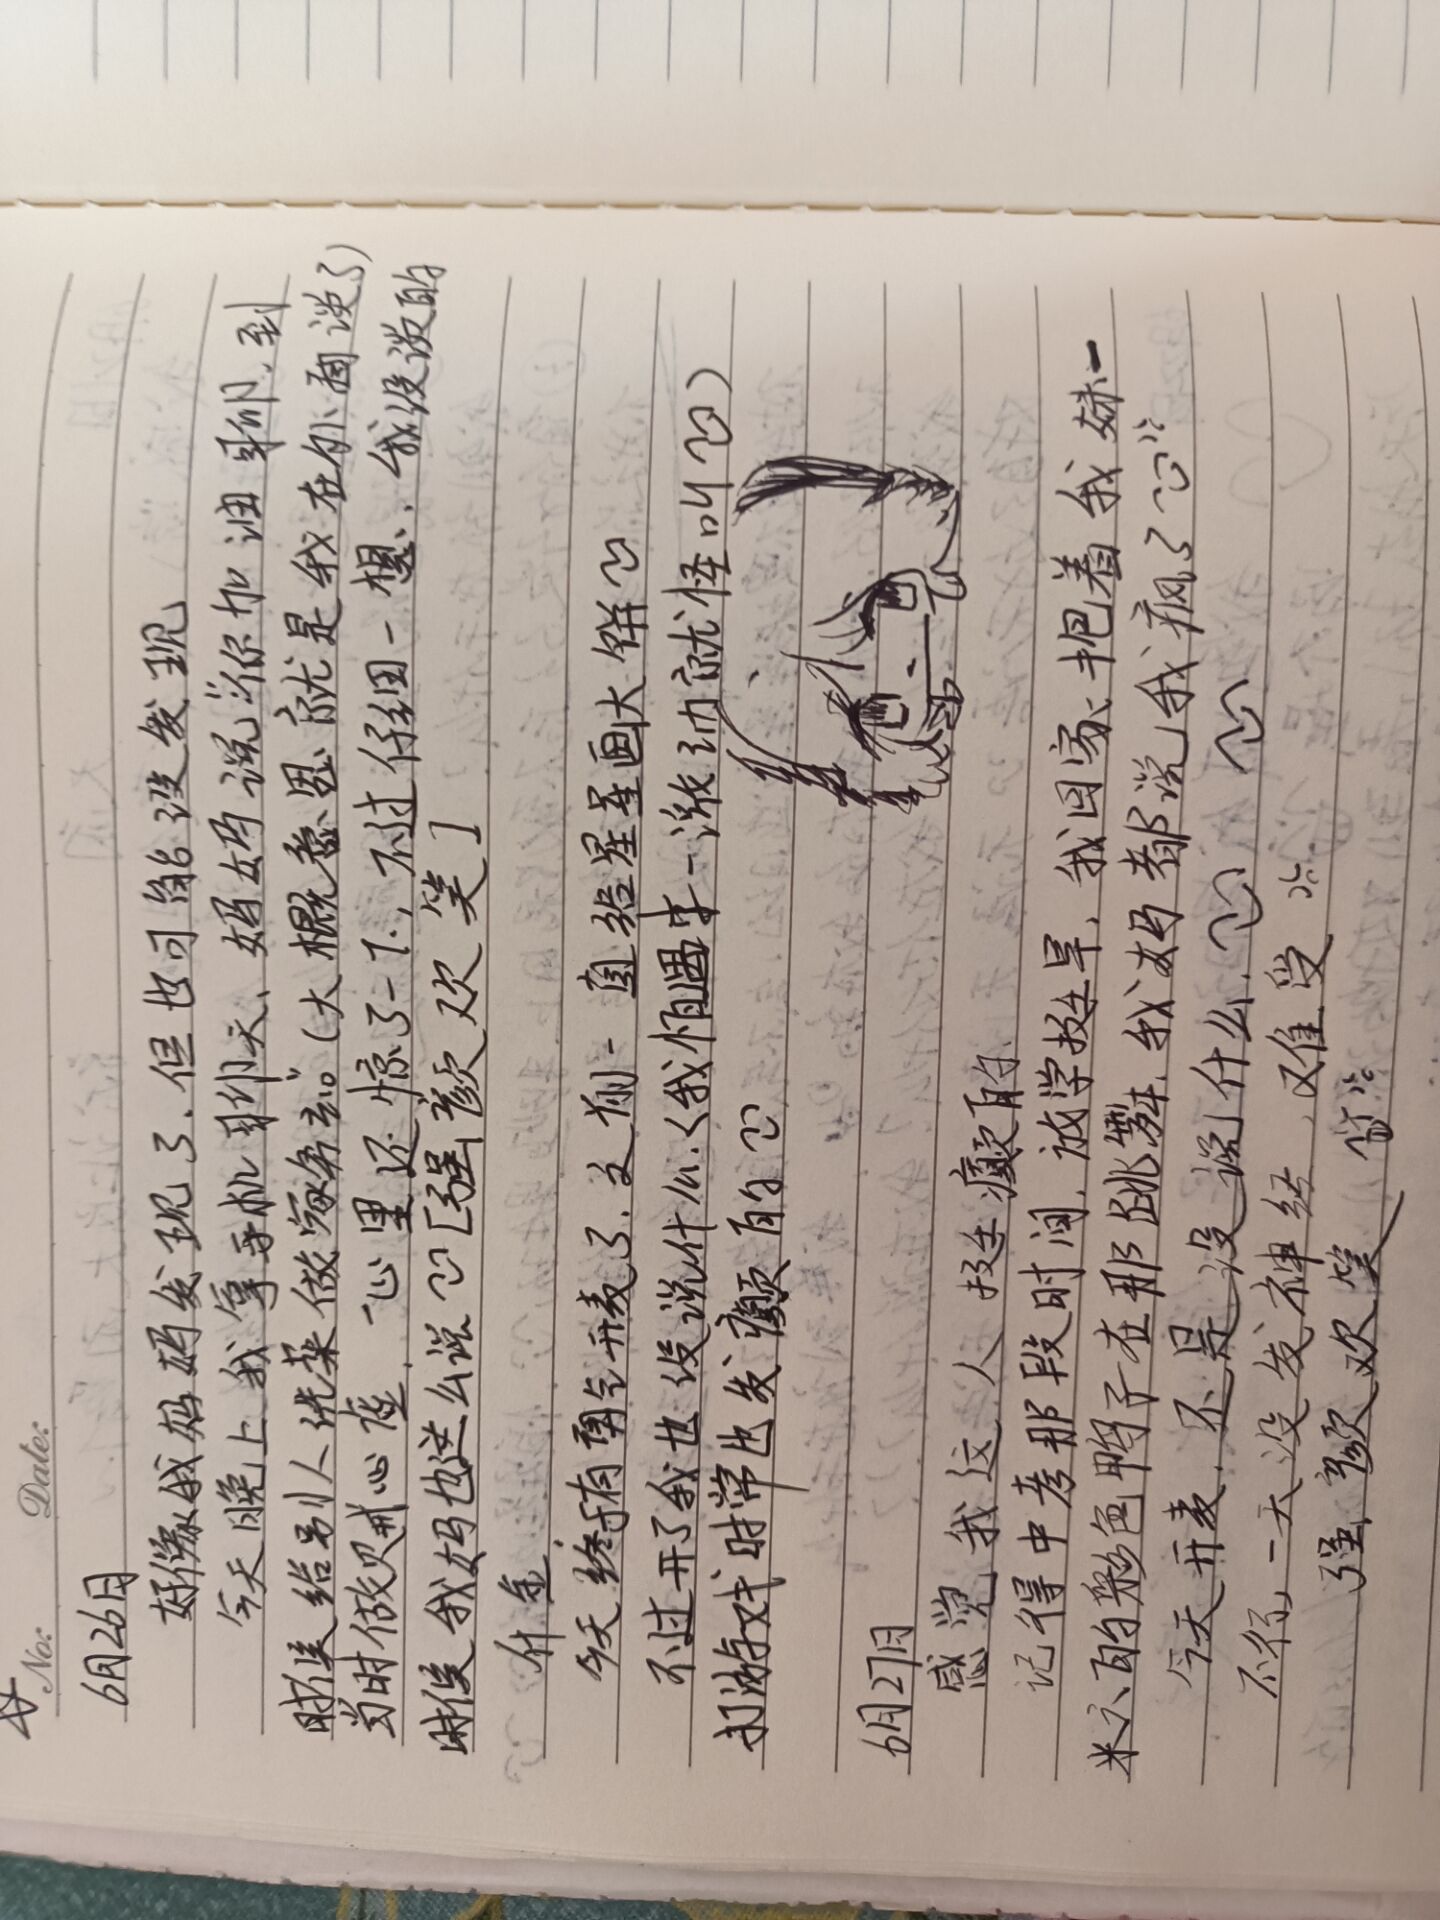 No: Date:
6月26日
好像我妈妈发现了.但也可能没发现
今天晚上我拿手机聊天、妈妈说:"你加油聊.到
时候给别人洗菜做家务去。"(大概意思就是我在外面谈了)
当时做贼心虚,心里还惊了一下,不过仔细一想.我没谈的
时候我妈也这么说[强颜欢笑]
什金,
今天终于有勇气开麦了.之前一直给星星画大饼
不过开了我也没说什么.(我怕遇事一激动就怪叫)
打游戏时常也发癫的
6月27日
感觉我这人挺癫的.
记得中考那段时间,放学挺早,我回家、抱着我妹一
米六的彩色鸭子在那跳舞.我妈都说我疯了
今天开麦.还是没说什么.
不行,一天没发神经,难受
强颜欢笑